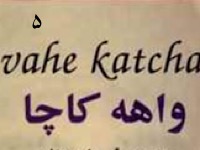 ۵
vahe katcha
واهه کاچا